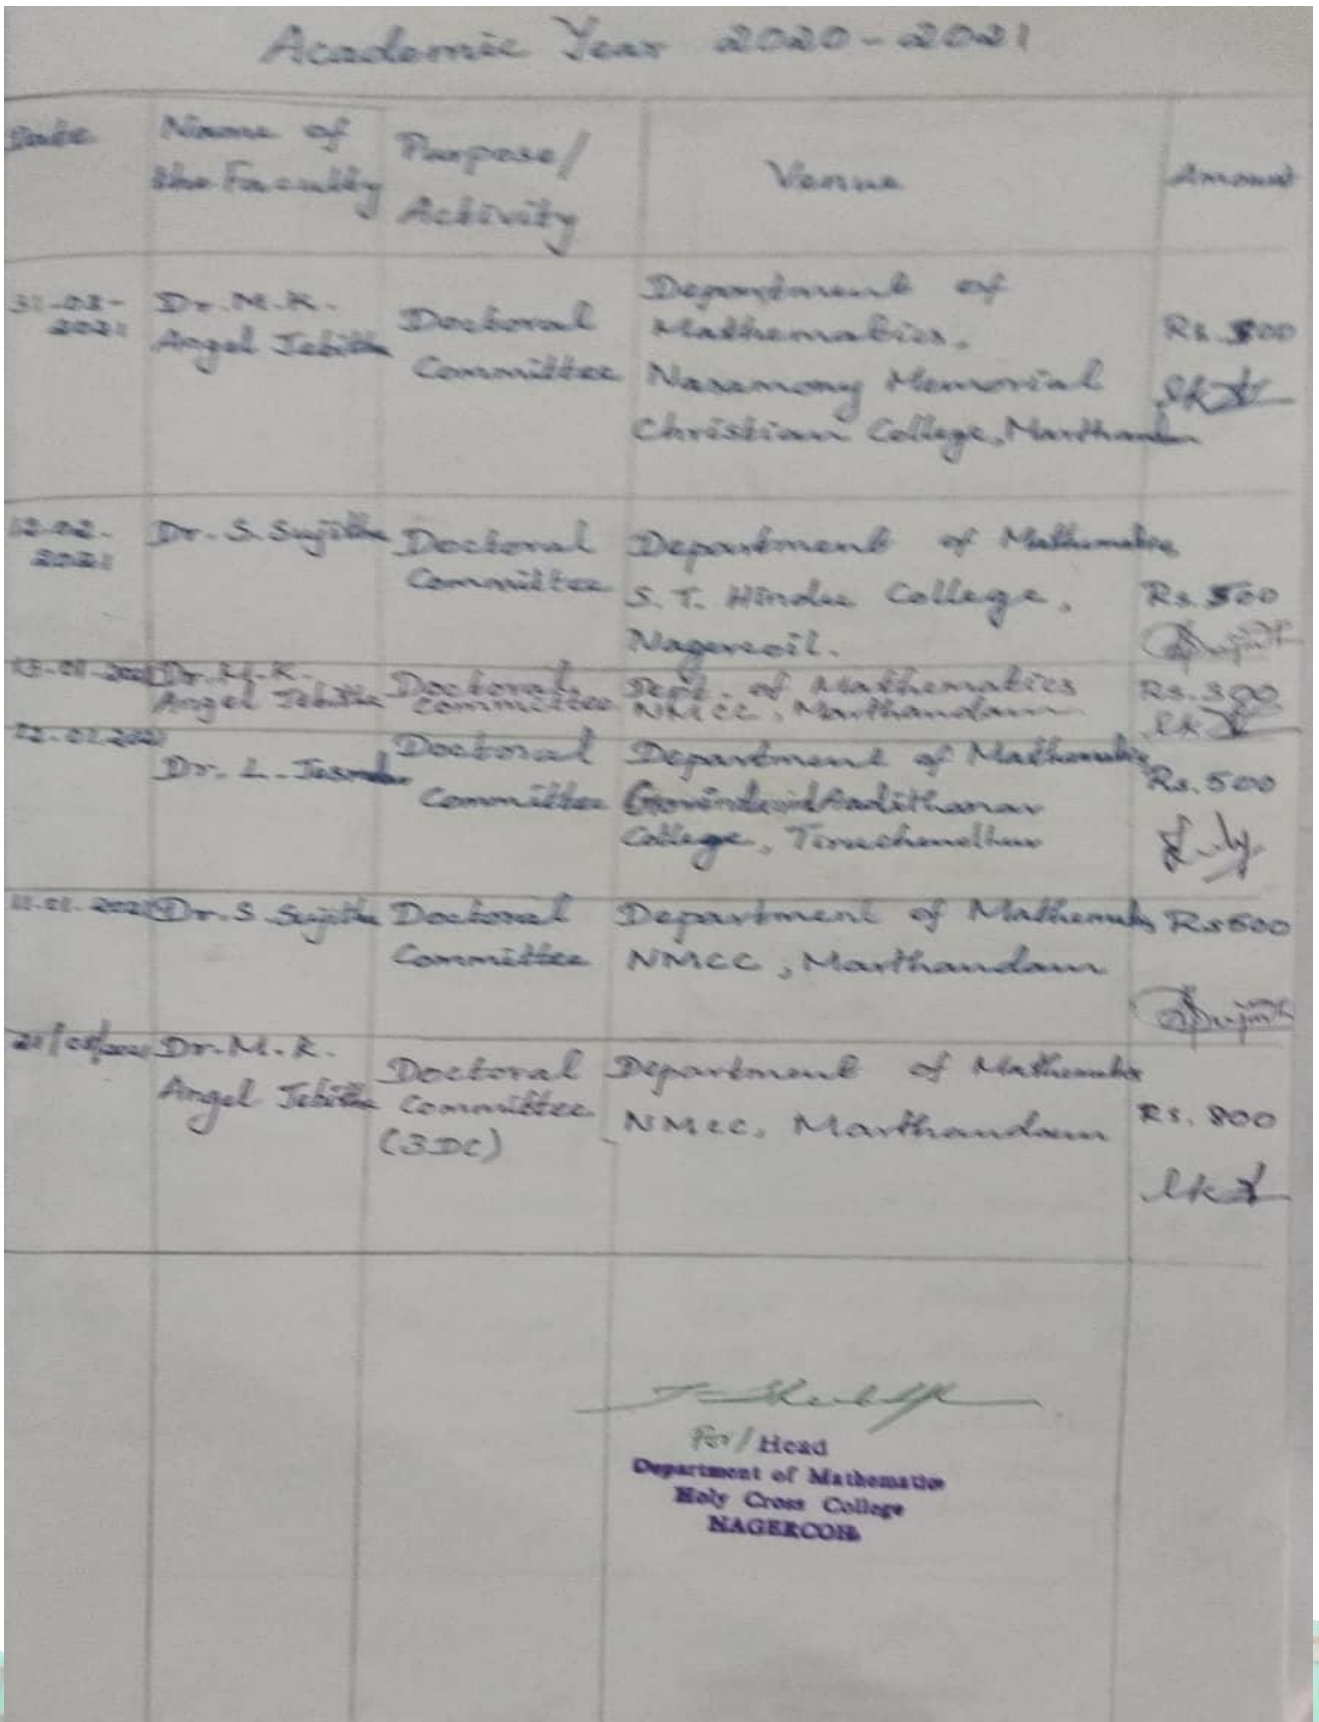 Academic Year 2020-2021
Date
Name of
the Faculty
Purpose/
Activity
Venue
Amount
2021
Dr. M.K.
Angel Jebitha
Doctoral
Committee
Department of
Mathematics,
Nesamony Memorial
Christian College, Marthandam
Rs.
12-02-
2021
Dr. S. Sujitha
Doctoral
Committee
Department of Mathematics
S. T. Hindu College,
Nagercoil.
Rs.
Dr. M.K.
Angel Jebitha
Doctoral
Committee
Dept. of Mathematics
NMCC, Marthandam
Rs. 300
Dr. L. Jesmalar
Doctoral
Committee
Department of Mathematics
Govindammal Aadithanar
College, Tiruchendhur
Rs. 500
Dr. S. Sujitha
Doctoral
Committee
Department of Mathematics
NMCC, Marthandam
Rs 500
Dr. M. K.
Angel Jebitha
Doctoral
Committee
(3DC)
Department of Mathematics
NMCC, Marthandam
Rs. 800
For/ Head
Department of Mathematics
Holy Cross College
NAGERCOIL